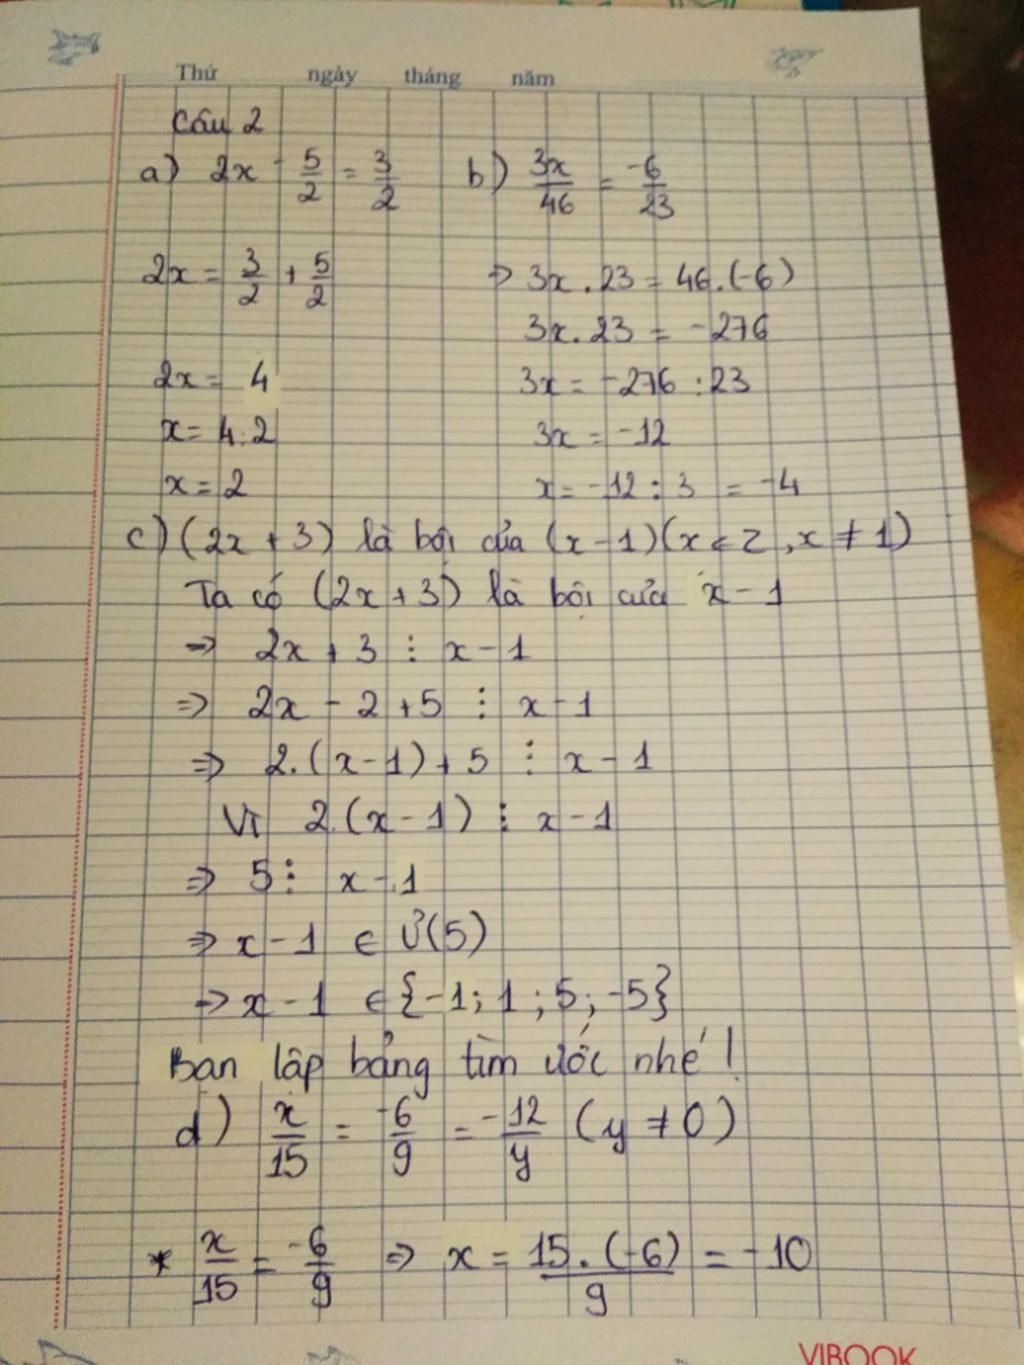 Thứ ngày tháng năm
Câu 2
a) 2x - 5/2 = 3/2
2x = 3/2 + 5/2
2x = 4
x = 4:2
x = 2
b) 3x/46 = -6/23
=> 3x . 23 = 46.(-6)
3x. 23 = -276
3x = -276 : 23
3x = -12
x = -12 : 3 = -4
c) (2x + 3) là bội của (x - 1) (x ∈ Z, x ≠ 1)
Ta có (2x + 3) là bội của x - 1
=> 2x + 3 ⋮ x - 1
=> 2x - 2 + 5 ⋮ x - 1
=> 2.(x - 1) + 5 ⋮ x - 1
Vì 2.(x - 1) ⋮ x - 1
=> 5 ⋮ x - 1
=> x - 1 ∈ Ư(5)
=> x - 1 ∈ {-1; 1; 5; -5}
Bạn lập bảng tìm ước nhé!
d) x/15 = -6/9 = -12/y (y ≠ 0)
* x/15 = -6/9 => x = 15.(-6)/9 = -10
VIBOOK